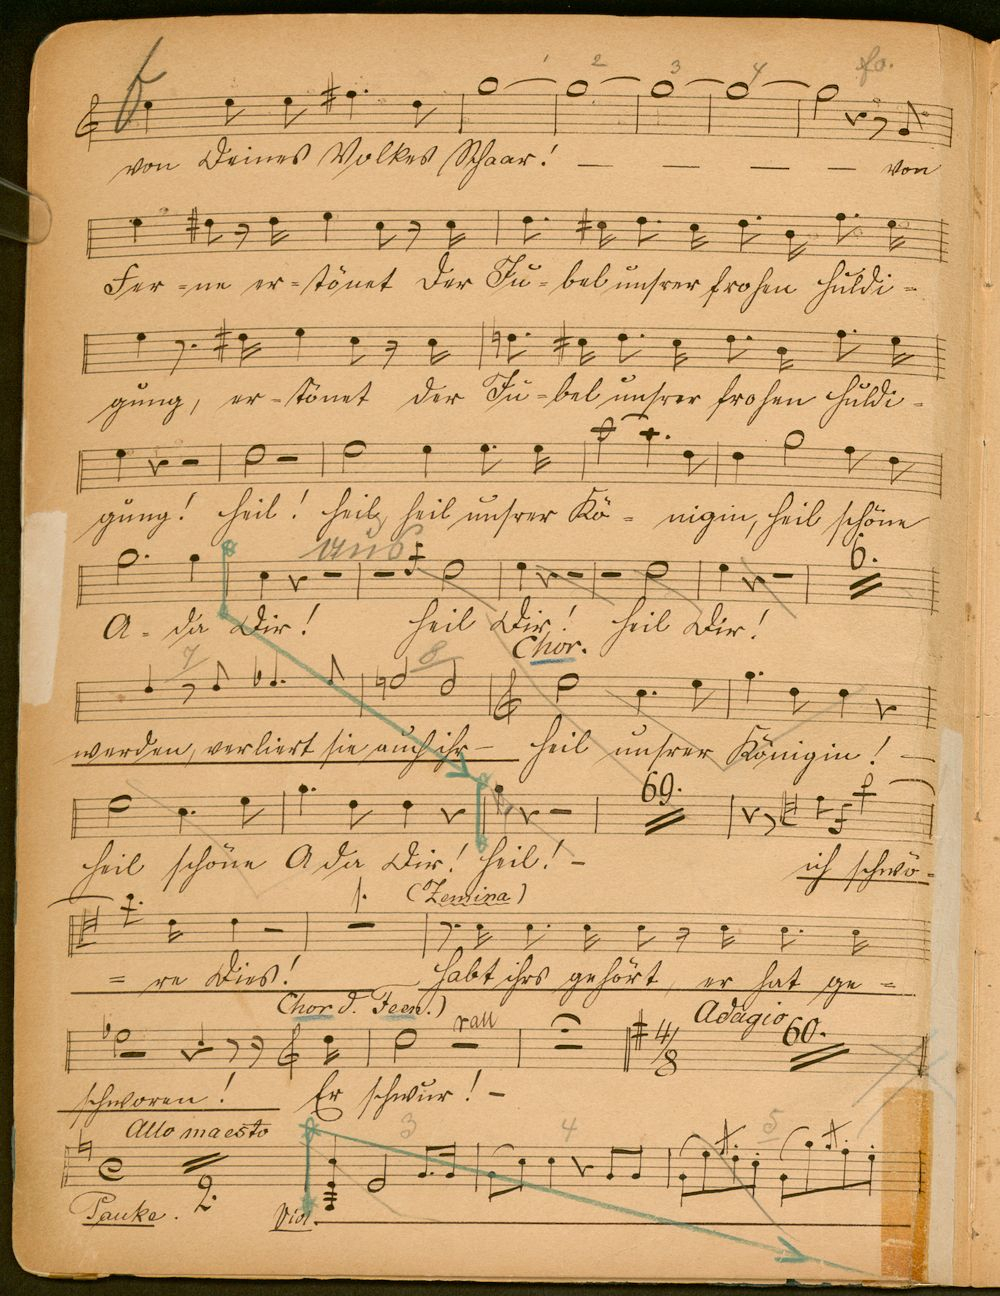 f 1 2 3 4 fo.
von Deines Volkes Schaar! — — — — von
Fer-ne er-tönet der Ju-bel unsrer frohen Huldi-
gung, er-tönet der Ju-bel unsrer frohen Huldi-
gung! Heil! Heil, Heil unsrer Kö- nigin, Heil schöne
aus 6.
A-da Dir! Heil Dir! Heil Dir!
Chor.
7 8
werden, verliert sie auch ihr — Heil unsrer Königin! —
69.
Heil schöne Ada Dir! Heil! — ich schwö-
1. (Zemina)
= re Dies! habt ihrs gehört, er hat ge-
Chor d. Feen.) rall Adagio 60.
4/8
schworen! Er schwur! —
Allo maesto 3 4 5
2.
Pauke. Viol.